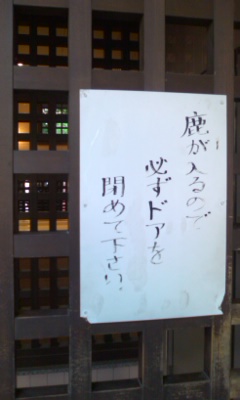 鹿が入るので
必ずドアを
閉めて下さい。